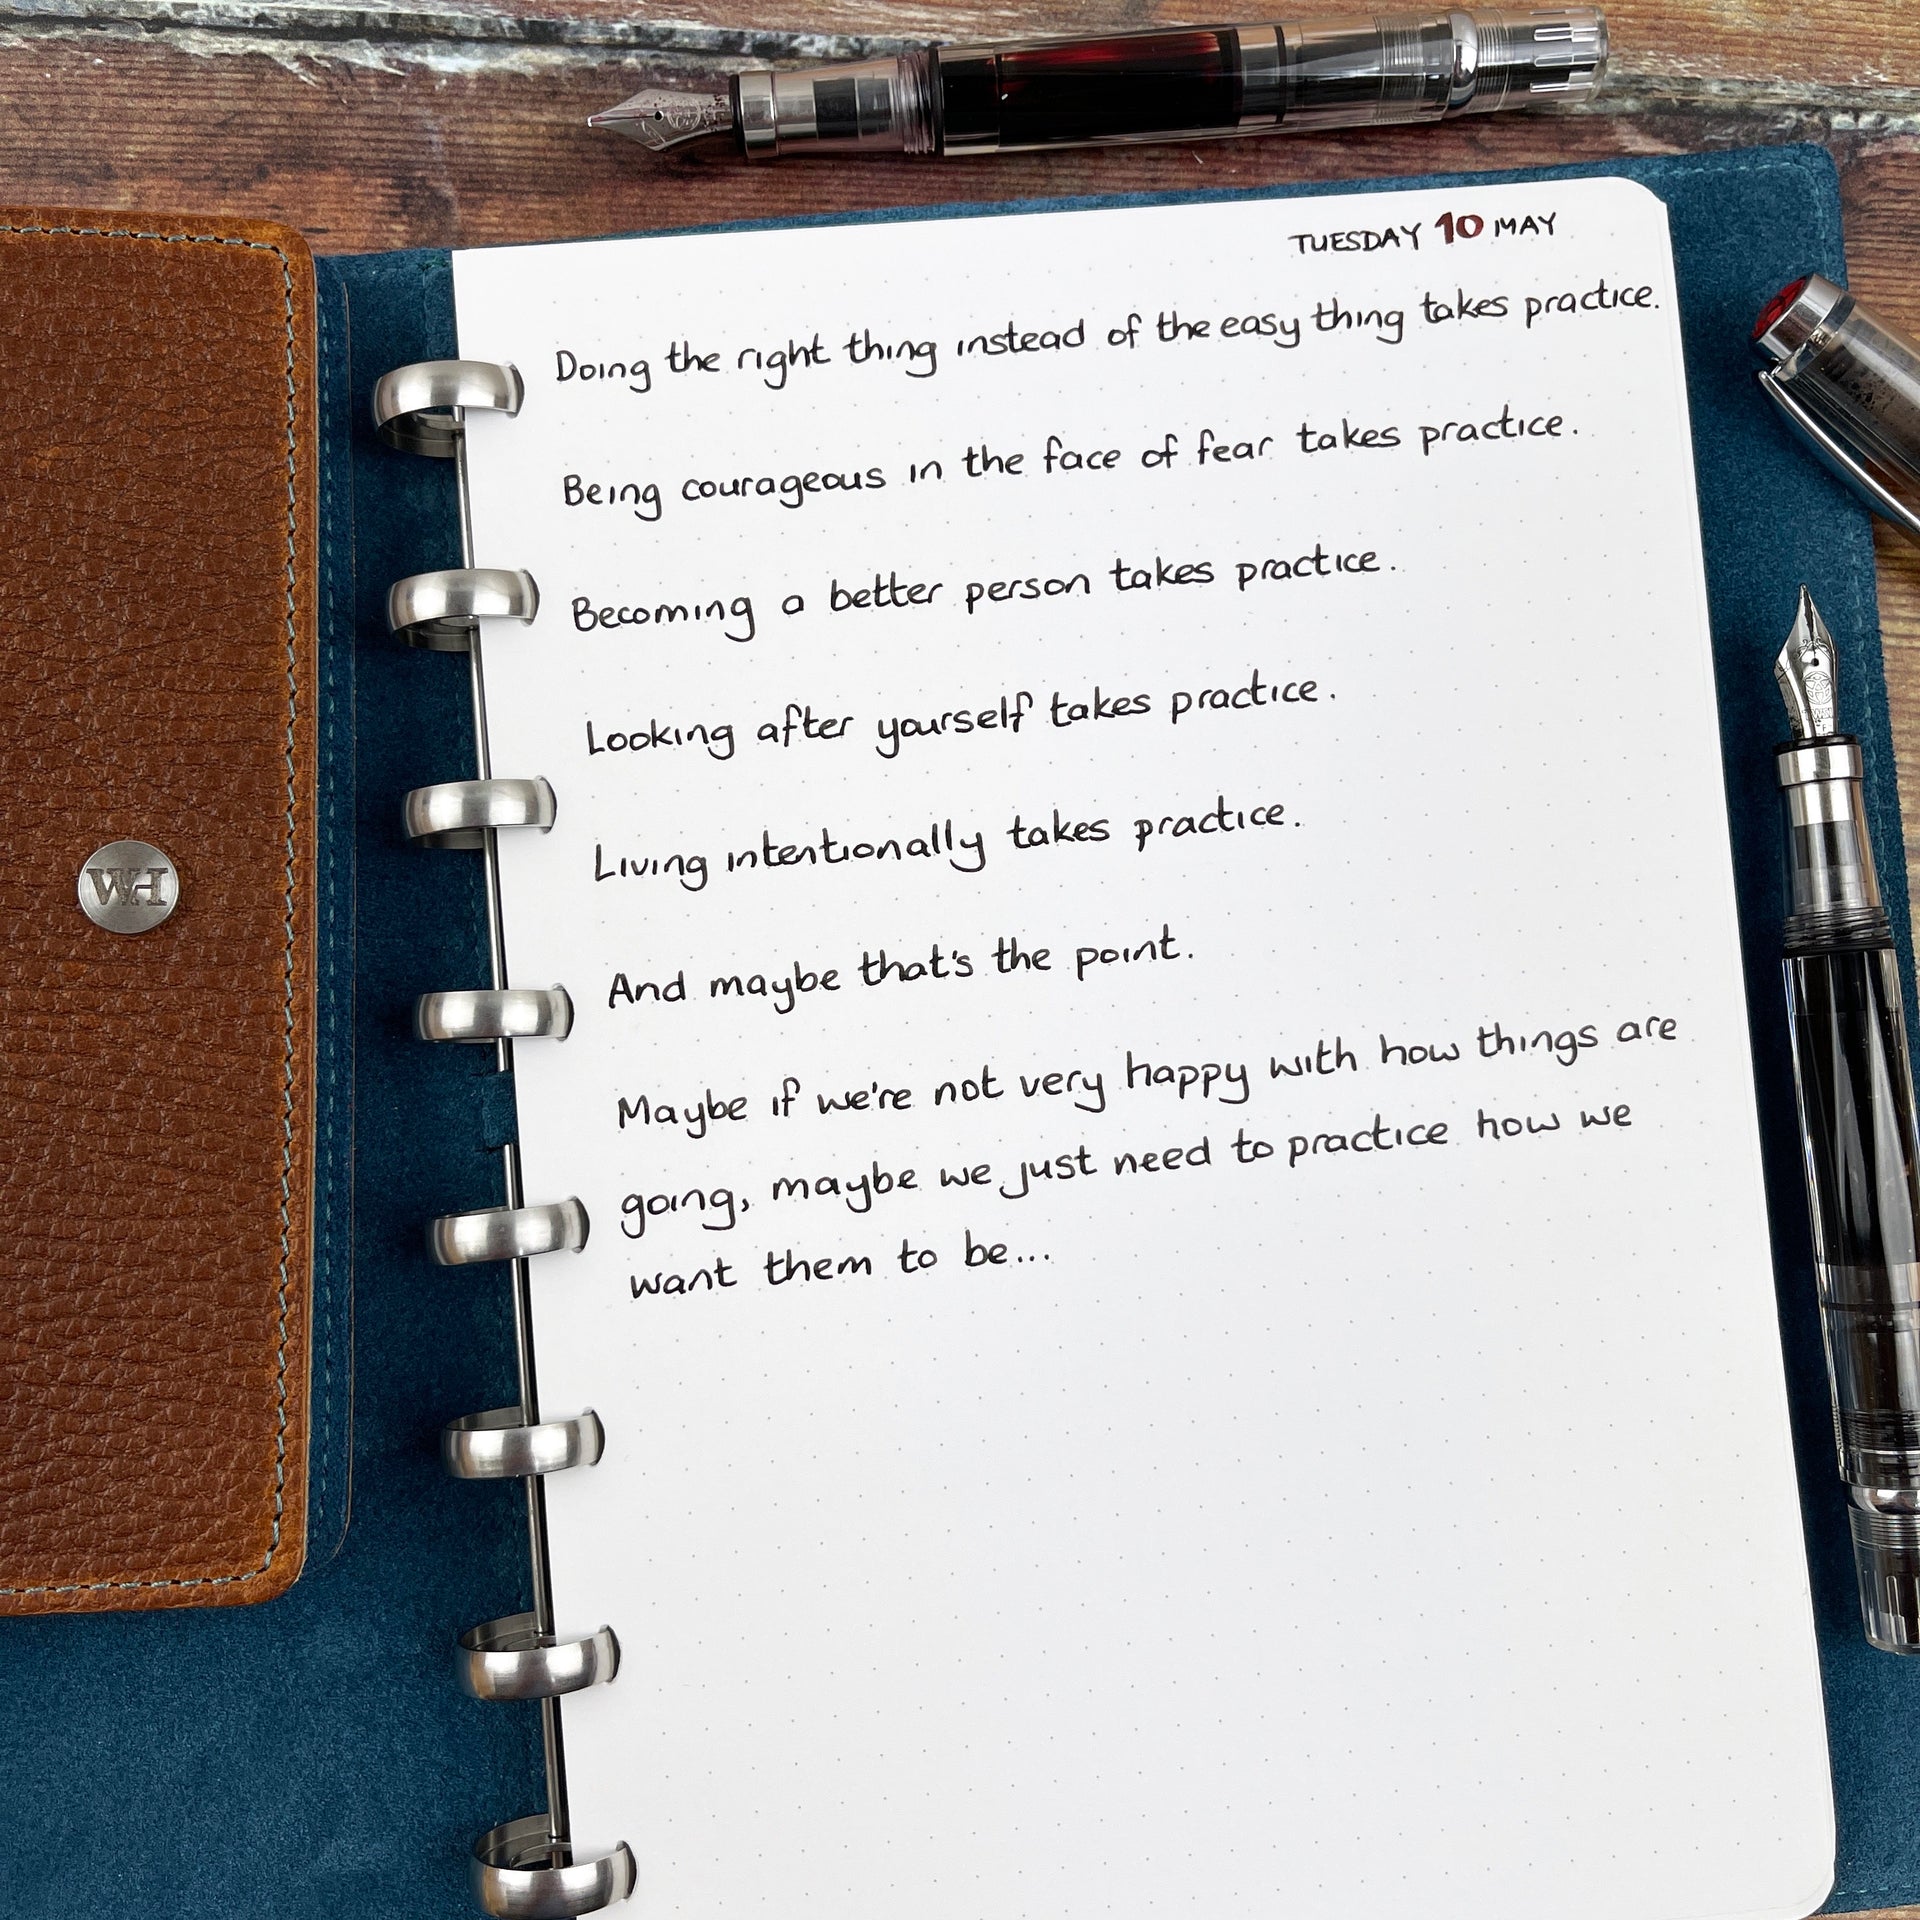 WH
TUESDAY 10 MAY
Doing the right thing instead of the easy thing takes practice.
Being courageous in the face of fear takes practice.
Becoming a better person takes practice.
Looking after yourself takes practice.
Living intentionally takes practice.
And maybe that's the point.
Maybe if we're not very happy with how things are
going, maybe we just need to practice how we
want them to be...